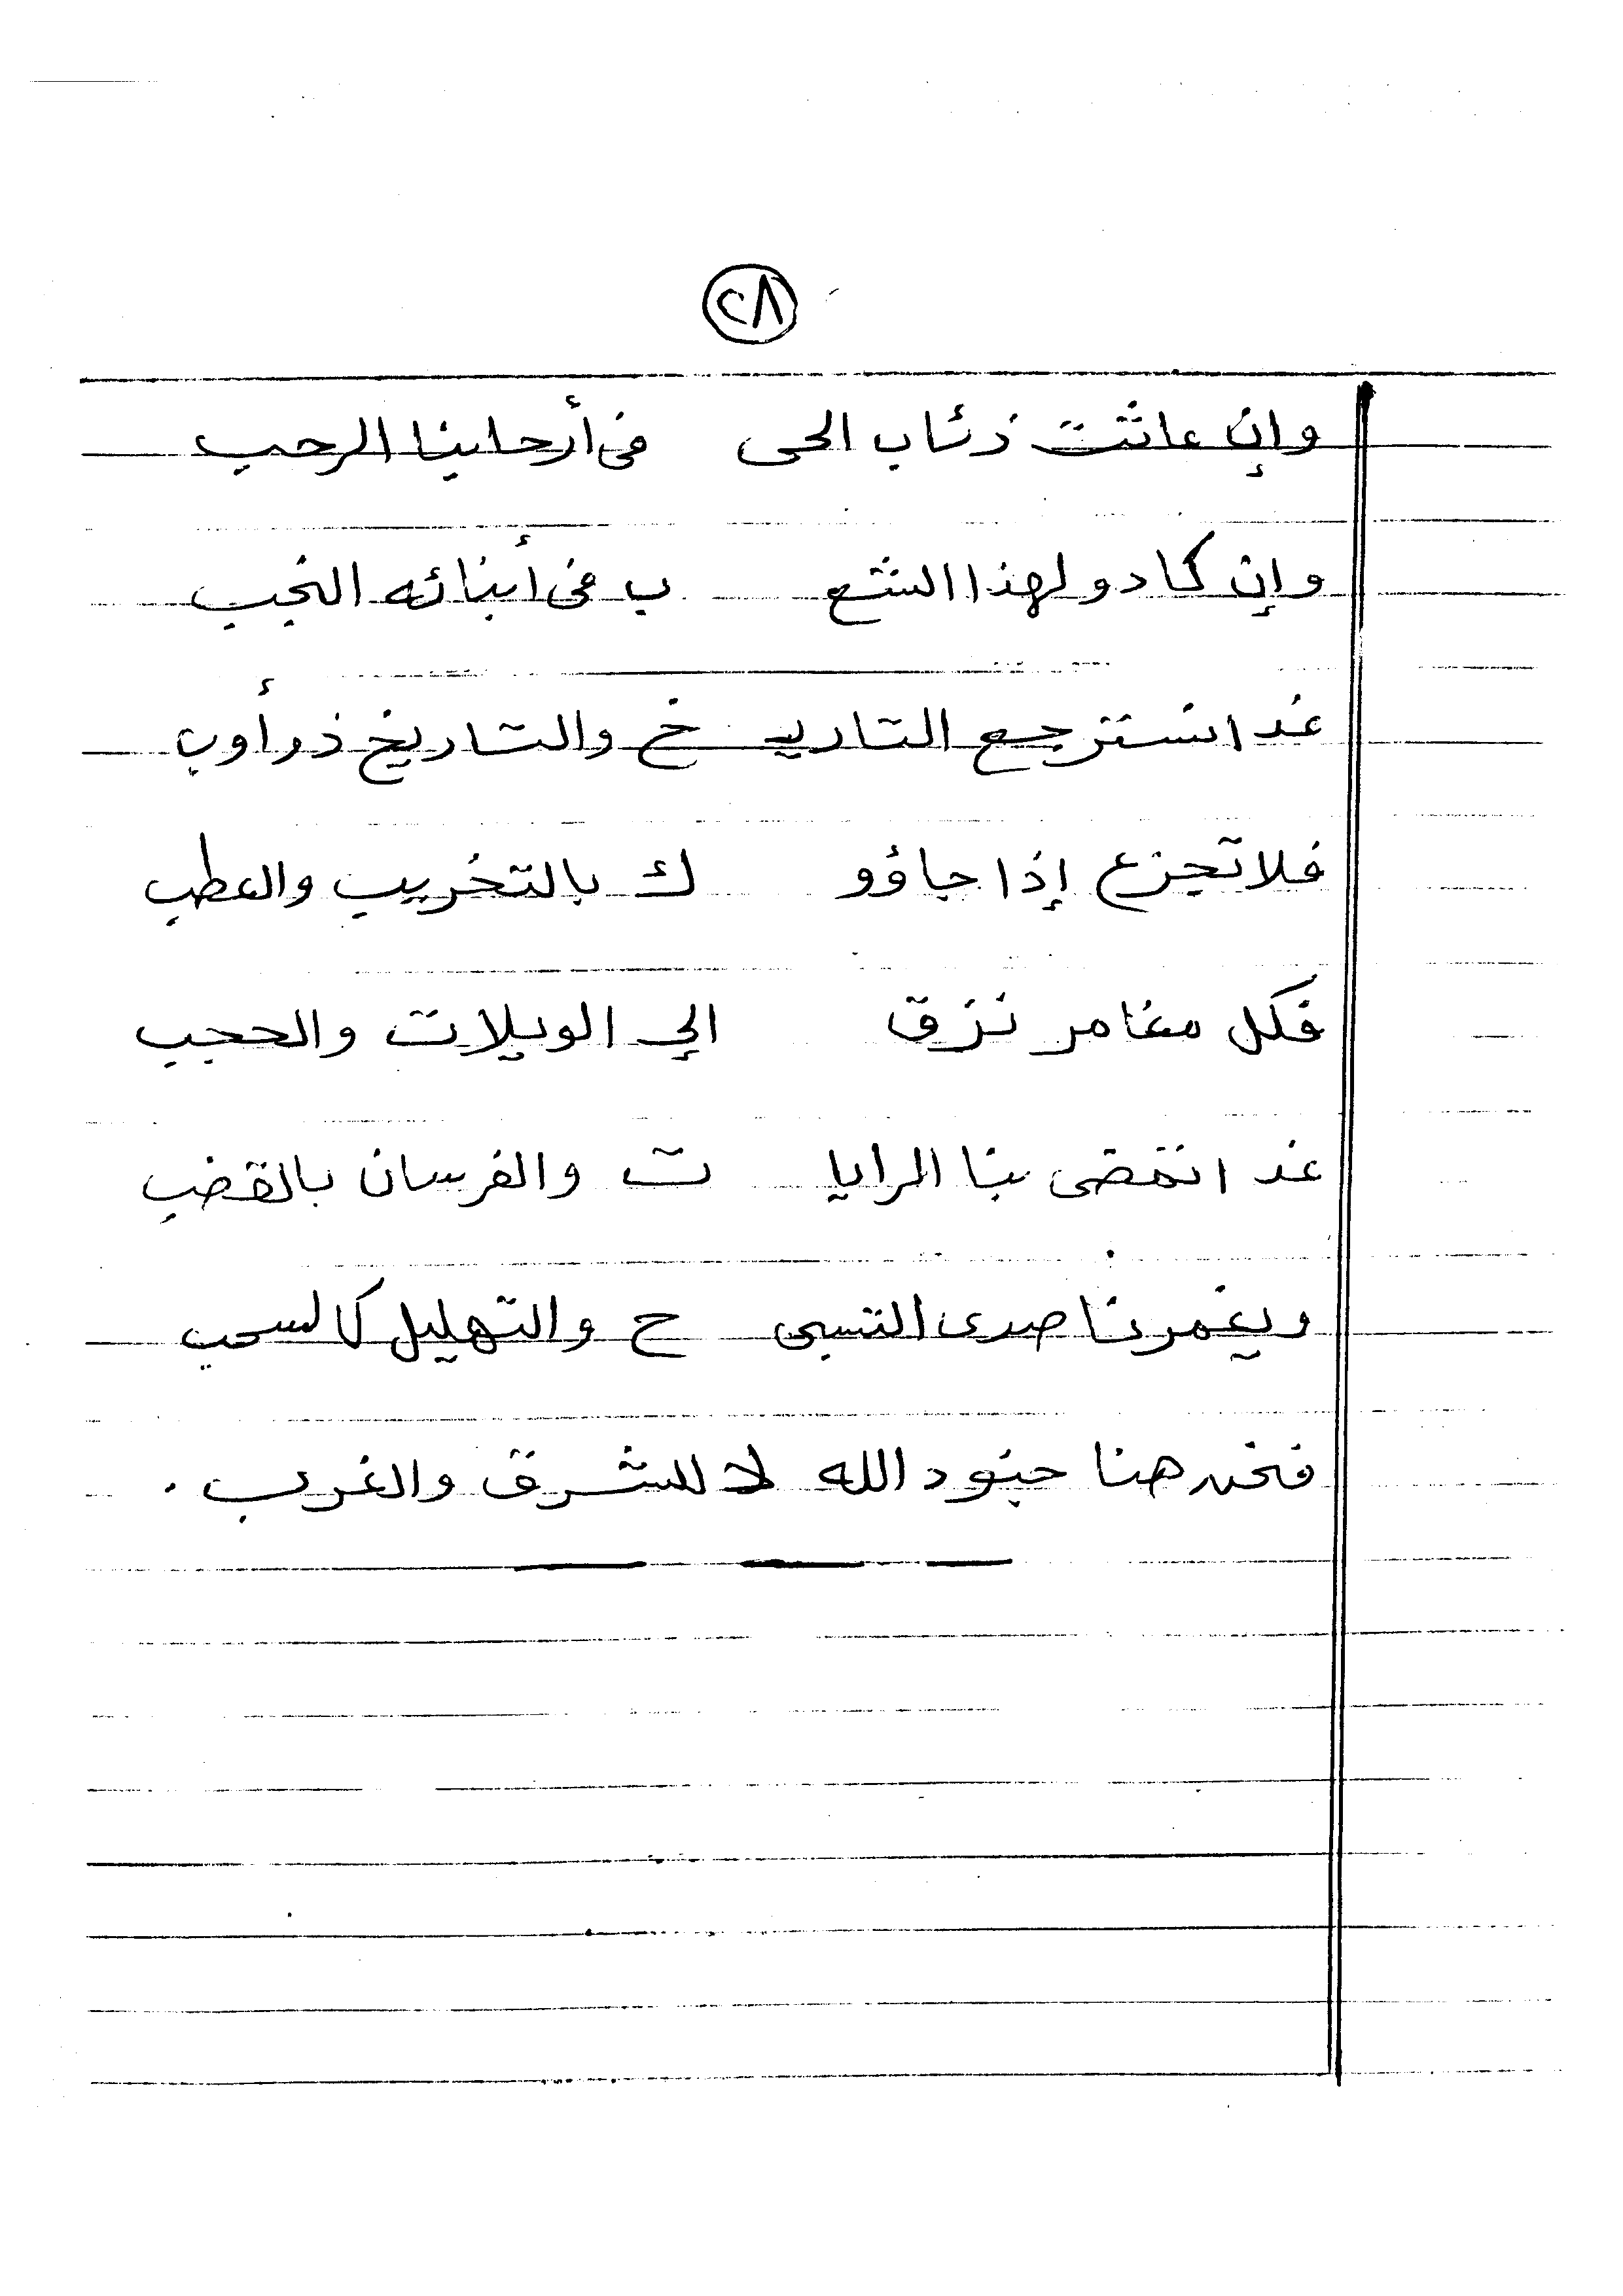 ٢٨
وإن عاثت ذئاب الحى فى أرحابنا الرحب
وإن كادو لهذا الشع ب فى أبنائه النجب
غدا نسترجع التاريـ خ والتاريخ ذو أوب
فلا تجزع إذا جاؤو ك بالتخريب والعطب
فكل مغامر نزق إلي الويلات والحجب
غدا تمضى بنا الرايا ت والفرسان بالقضب
ويغمرنا صدى التسبى ح والتهليل كالسحب
فنحن هنا جنود الله لا للشرق والغرب .